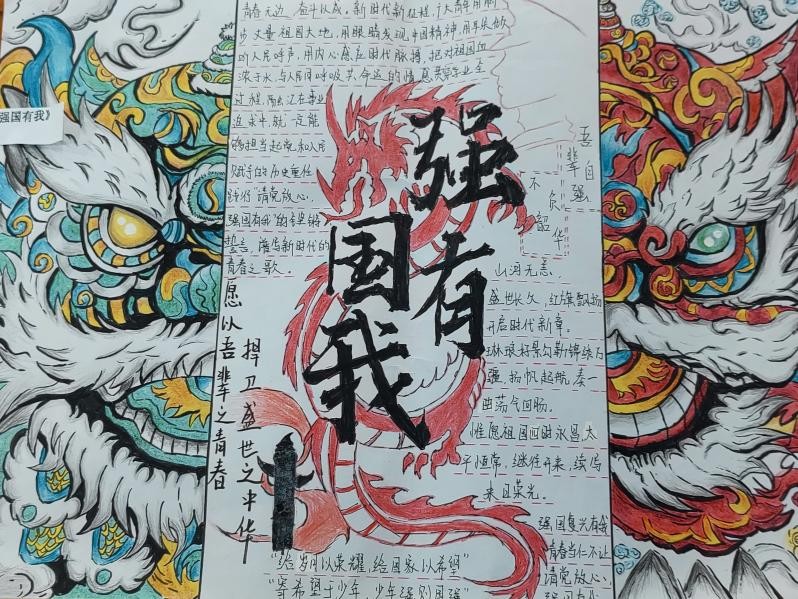 青春无边，奋斗以成。新时代新征程，广大青年用脚
步丈量祖国大地，用眼睛发现中国精神，用耳朵倾
听人民呼声，用内心感应时代脉搏，把对祖国血
浓于水、与人民同呼吸共命运的情感贯穿学业全
过程、融汇在事业
追求中，就一定能
够担当起党和人民
赋予的历史重任
践行“请党放心，
强国有我”的铮铮
誓言，谱写新时代的
青春之歌。
强国有我》
强
国有
我
吾辈自强
不负韶华
山河无恙，
盛世长久，红旗飘扬
开启时代新章。
琳琅好景勾勒锦绣
疆，扬帆起航，奏一
曲荡气回肠。
惟愿祖国四时永昌，太
平恒常，继往开来，续写
来日荣光。
愿以吾辈之青春
捍卫盛世之中华
强国复兴有我
青春当仁不让
请党放心，
强国有我
“给岁月以荣耀，给国家以希望”
“寄希望于少年，少年强则国强”